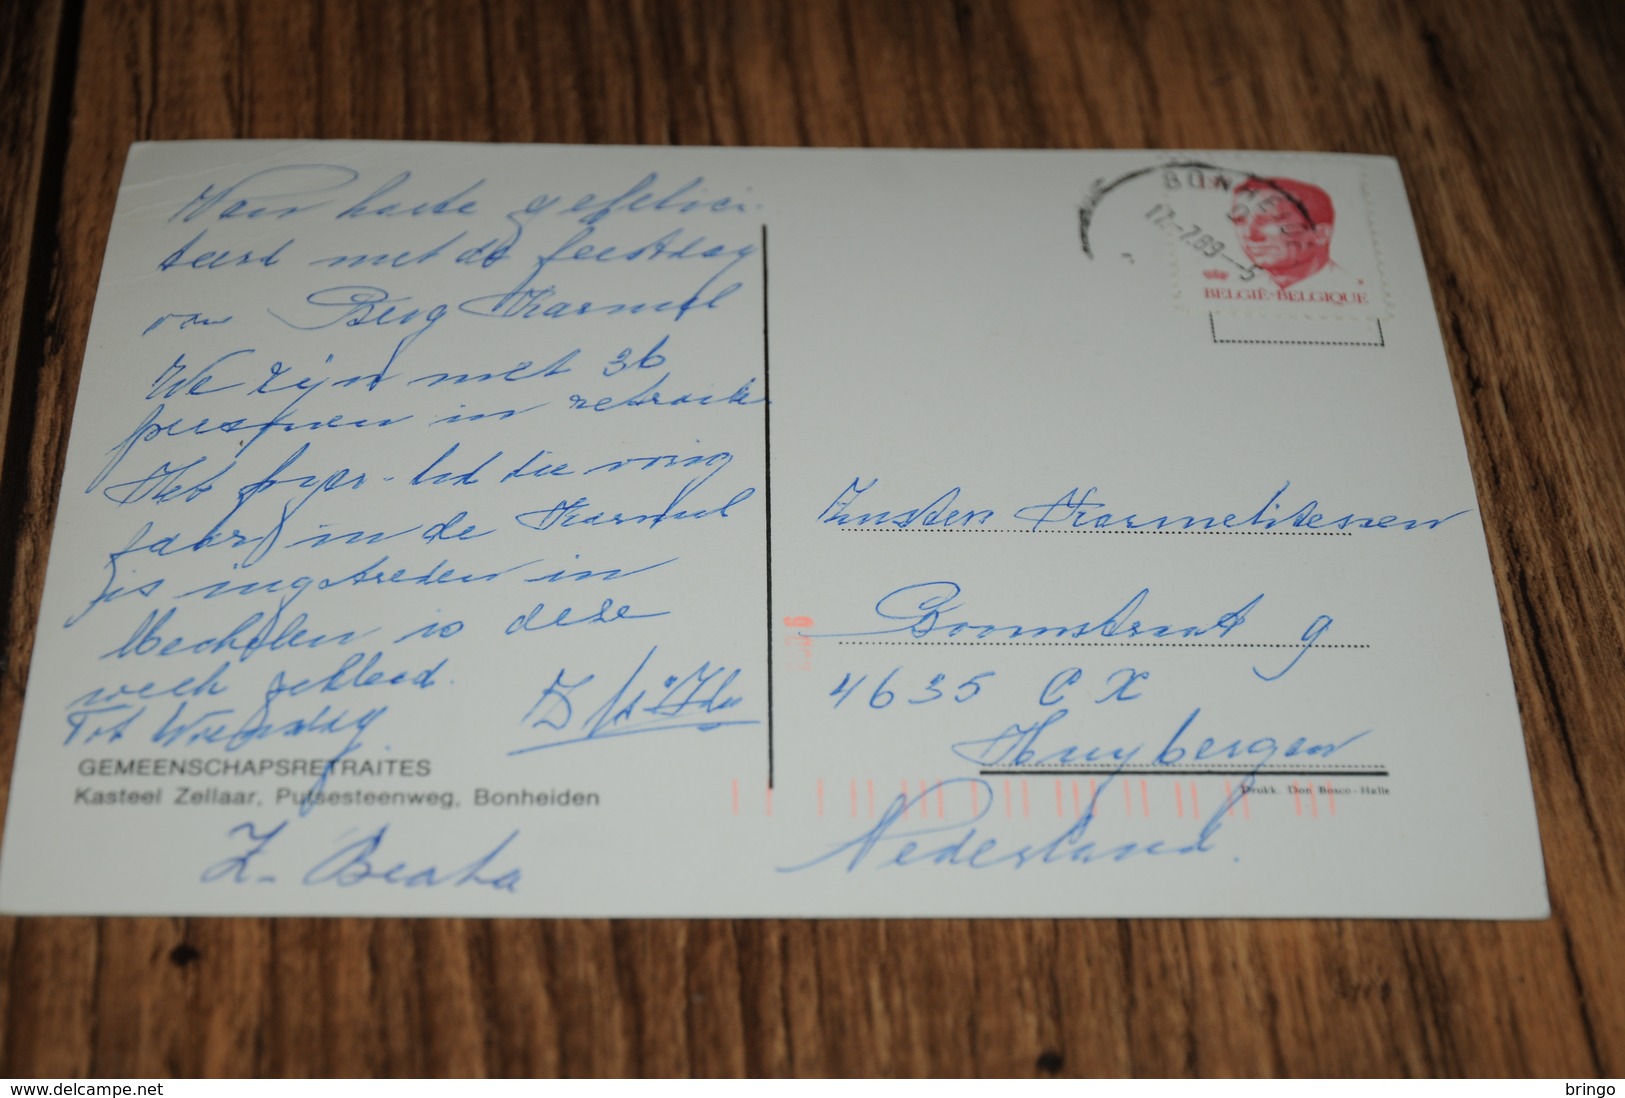 Van harte gefelici-
teerd met de feestdag
van Berg Karmel
We zijn met 36
personen in retraite
Het die vorig
jaar in de Karmel
is ingetreden in
Mechelen is deze
week gekleed.
Tot Woensdag
GEMEENSCHAPSRETRAITES
Kasteel Zellaar, Putsesteenweg, Bonheiden
Z. Beata
BONHEIDEN
17-7.89-5
BELGIË-BELGIQUE
Zusters Karmelitessen
Boomstraat 9
4635 CX
Huybergen
Drukk. Don Bosco - Halle
Nederland.
delcampe.net
bringo